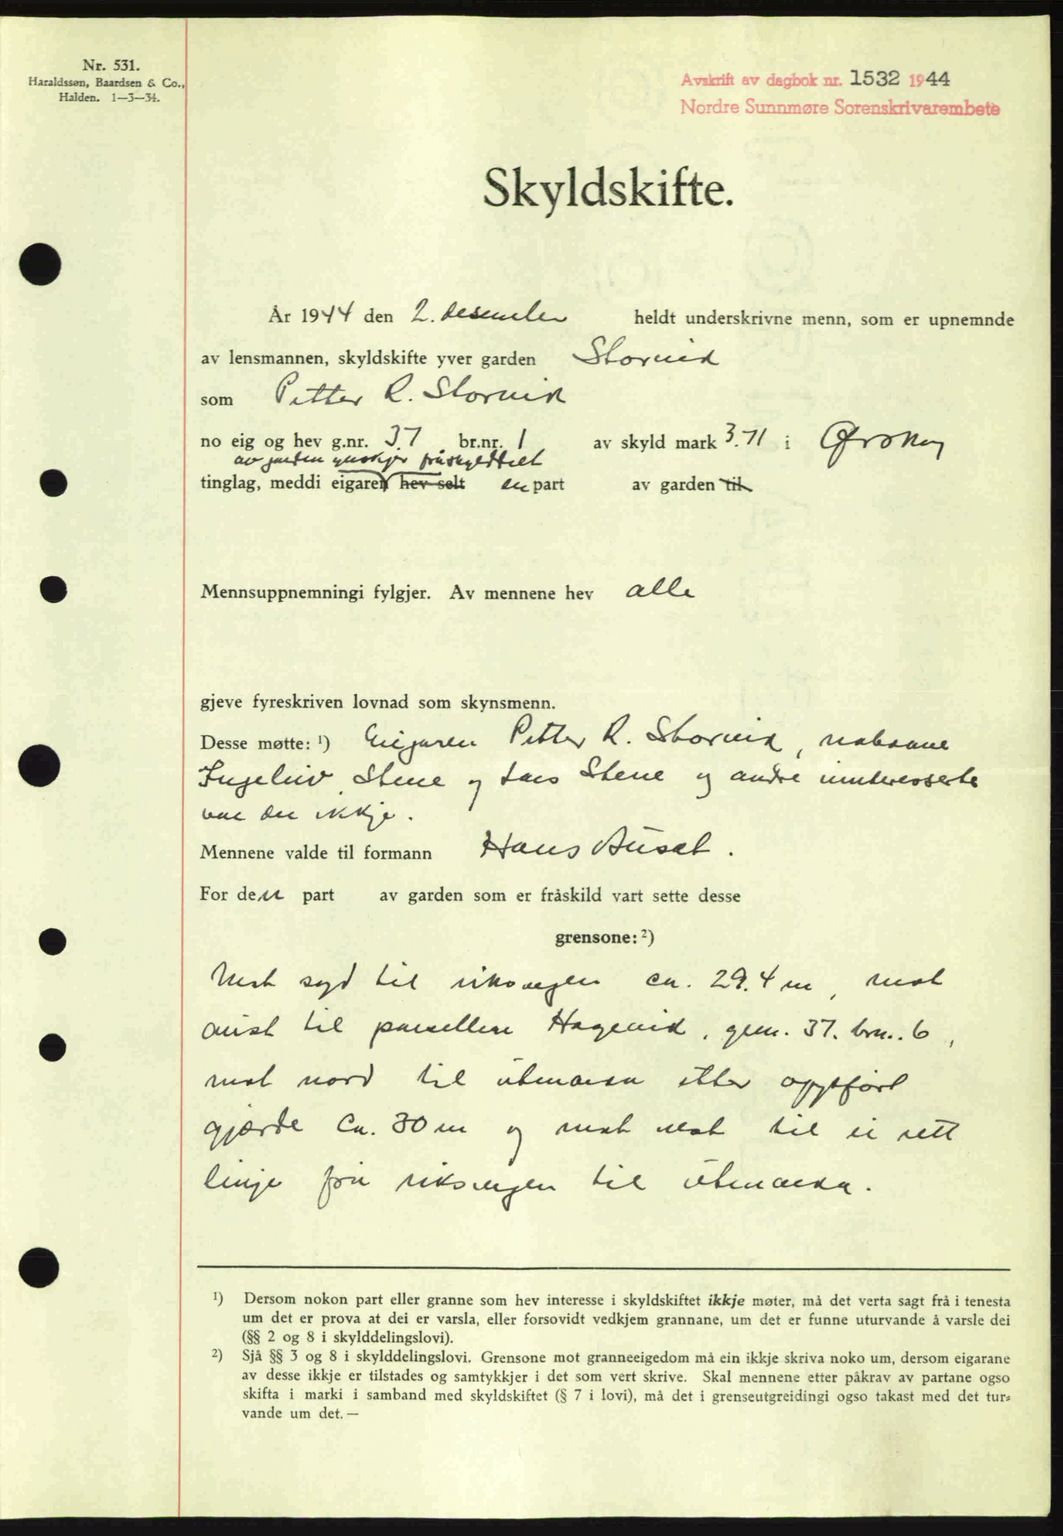 Nr. 531.
Haraldssøn, Baardsen & Co.,
Halden. 1—3—34.
Avskrift av dagbok nr. 1532 1944
Nordre Sunnmøre Sorenskrivarembete
Skyldskifte.
År 1944 den 2. desember heldt underskrivne menn, som er upnemnde
av lensmannen, skyldskifte yver garden Storvik
som Petter R. Storvik
no eig og hev g.nr. 37 br.nr. 1 av skyld mark 3.71 i Ørskog
av garden ynskjer fråskyldt eit
tinglag, meddi eigaren hev selt en part av garden til
Mennsuppnemningi fylgjer. Av mennene hev alle
gjeve fyreskriven lovnad som skynsmenn.
Desse møtte: ¹) Eigaren Petter R. Storvik, naboane
Ingeleiv Stene og Lars Stene og andre interesserte
var der ikkje.
Mennene valde til formann Hans Auset.
For den part av garden som er fråskild vart sette desse
grensone: ²)
Mot syd til riksvegen ca. 29.4 m, mot
aust til parsellen Hagevik, gnr. 37. brn. 6,
mot nord til utmarka etter oppført
gjærde ca. 30 m og mot vest til ei rett
linje frå riksvegen til utmarka.
¹) Dersom nokon part eller granne som hev interesse i skyldskiftet ikkje møter, må det verta sagt frå i tenesta
um det er prova at dei er varsla, eller forsovidt vedkjem grannane, um det er funne uturvande å varsle dei
(§§ 2 og 8 i skylddelingslovi).
²) Sjå §§ 3 og 8 i skylddelingslovi. Grensone mot granneeigedom må ein ikkje skriva noko um, dersom eigarane
av desse ikkje er tilstades og samtykkjer i det som vert skrive. Skal mennene etter påkrav av partane ogso
skifta i marki i samband med skyldskiftet (§ 7 i lovi), må det i grenseutgreidingi ogso takast med det tur-
vande um det.—